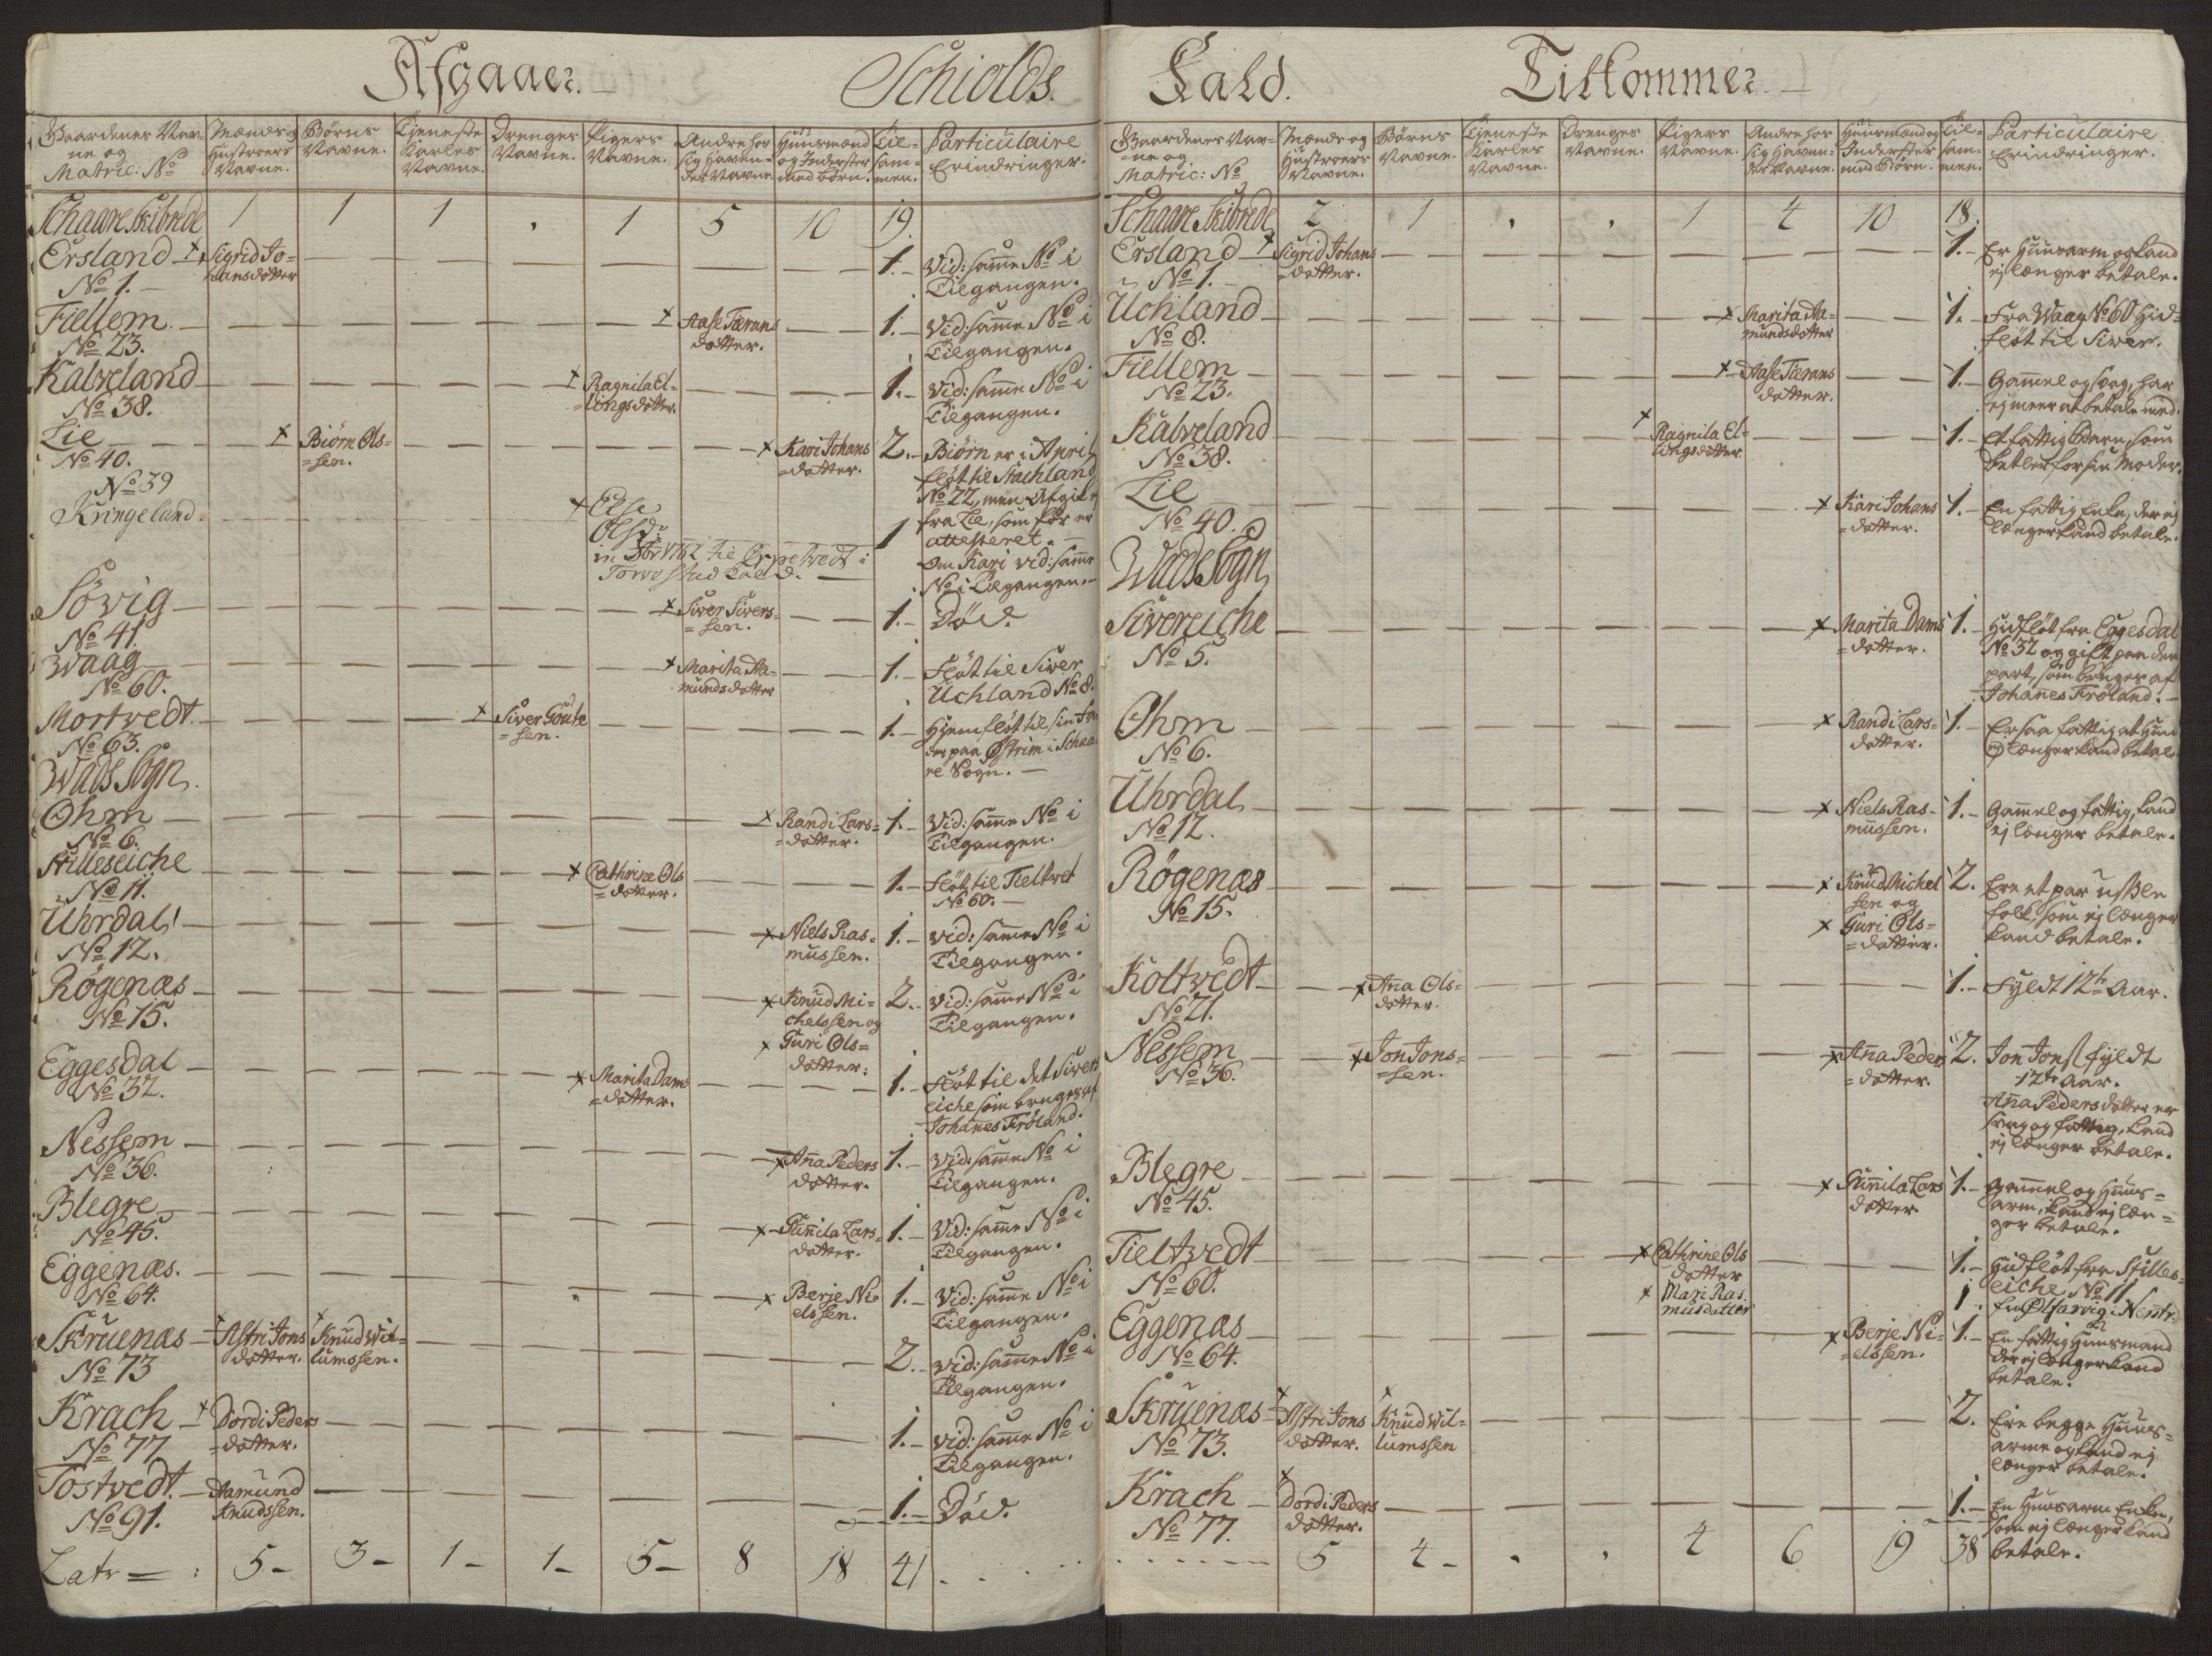 Afgaaer. Schiolds
Gaardenes Nav-
ne og
Matric: No
Mænds og
Hustroers
Navne.
Børns
Navne.
Tieneste
Karles
Navne.
Drenges
Navne.
Pigers
Navne.
Andre hos
sig haven-
des Navne
Huusmænd
og Inderster
med børn.
Til-
sam-
men.
Particulaire
Erindringer.
Schaare Skibrede 1 1 1 . 1 5 10 19.
Ersland No 1. Sigrid Jo-
hansdotter 1. Vid: samme No i
Tilgangen.
Fiellem No 23. Aase Tærans
dotter. 1. Vid: samme No i
Tilgangen.
Kalveland No 38. Ragnila El-
lingsdotter. 1. Vid: samme No i
Tilgangen.
Lie No 40. Biørn Ols-
sen. Kari Johans
dotter. 2. Biørn er i April
fløt til Stachland
No 22, men Afgik
fra Lie, som før er
attesteret.
Om Kari vid: samme
No i Tilgangen.
No 39
Kringeland Else
Olsd: 1
Søvig No 41. Siver Sivers-
sen. 1. Død.
Waag No 60. Marita Aa-
mundsdotter 1. Fløt til Siver
Uchland No 8.
Mortvedt No 63. Siver Goute
sen. 1. Hiemfløt til sin Fa-
der paa Østrim i Schaa-
re Sogn.
Wads Sogn.
Ohm No 6. Randi Lars-
dotter. 1. Vid: samme No i
Tilgangen.
Stilleseiche No 11. Cathrine Ols
dotter. 1. Fløt til Tieltvet
No 60.
Uhrdal No 12. Niels Ras-
mussen. 1. Vid: samme No i
Tilgangen.
Røgenæs No 15. Knud Mi-
chelssen og
Guri Ols-
dotter. 2. Vid: samme No i
Tilgangen.
Eggesdal No 32. Marita Dams
dotter. 1. Fløt til det Siver-
eiche som bruges af
Johanes Frøland.
Nessem No 36. Ana Peders
dotter. 1. Vid: samme No i
Tilgangen.
Blegre No 45. Gunila Lars-
dotter. 1. Vid: samme No i
Tilgangen.
Eggenæs No 64. Berje Ni-
elssen. 1. Vid: samme No i
Tilgangen.
Skruenæs No 73 Astri Jons
dotter. Knud Wil-
lumssen. 2. Vid: samme No i
Tilgangen.
Krach No 77 Dordi Peders
dotter. 1. Vid: samme No i
Tilgangen.
Tostvedt No 91. Aamund
Knudssen. 1. Død.
Latr 5 3 1 1 5 8 18 41
Kald. Tilkommer
Gaardenes Nav-
ne og
Matric: No
Mænds og
Hustroers
Navne.
Børns
Navne.
Tieneste
Karles
Navne.
Drenges
Navne.
Pigers
Navne.
Andre hos
sig haven-
des Navne.
Huusmænd og
Inderster
med Børn.
Til-
sam-
men.
Particulaire
Erindringer.
Schaare Skibrede 2 1 . . 1 4 10 18.
Ersland No 1. Sigrid Johans
dotter. 1. Er Huusarm og kand
ej længer betale.
Uchland No 8. Marita Aa-
mundsdotter 1. Fra Waag No 60 Hid-
fløt til Siver.
Fiellem No 23. Aase Tærans
dotter. 1. Gammel og svag, har
ej meer at betale med.
Kalveland No 38. Ragnila El-
lingsdotter 1. Et fattig Barn, som
betler for sin Moder.
Lie No 40. Kari Johans
dotter. 1. En fattig Enke, der ej
længer kand betale.
Wads Sogn
Sivereiche No 5. Marita Dams
dotter. 1. Hidfløt fra Eggesdal
No 32 og gift paa den
part, som bruges af
Johanes Frøland.
Ohm No 6. Randi Lars-
dotter. 1. Er saa fattig at Hun
ej længer kand betale
Uhrdal No 12. Niels Ras-
mussen. 1. Gammel og fattig, kand
ej længer betale.
Røgenæs No 15. Knud Michel
sen og
Guri Ols-
dotter. 2. Ere et par usle
folk, som ej længer
kand betale.
Koltvedt No 21. Ana Ols-
dotter. 1. Fyldt 12te Aar.
Nessem No 36. Jon Jons-
sen. Ana Peders
dotter. 2. Jon Jons: fyldt
12te Aar.
Ana Pedersdotter er
svag og fattig, kand
ej længer betale.
Blegre No 45. Gunila Lars
dotter 1. Gammel og Huus-
arm, kand ej læn-
ger betale.
Tieltvedt No 60. Cathrine Ols
dotter 1. Hidfløt fra Stilles-
eiche No 11
Mari Ras.
musdatter 1.
Eggenæs No 64. Berje Ni-
elssen. 1. En fattig Huusmand
der ej længer kand
betale.
Skruenæs No 73. Astri Jons
dotter. Knud Wil-
lumssen 2. Ere begge Huus-
arme og kand ej
længer betale.
Krach No 77. Dordi Peders
dotter. 1. En Huusarm Enke,
som ej længer kand
betale.
5 4 . . 4 6 19 38